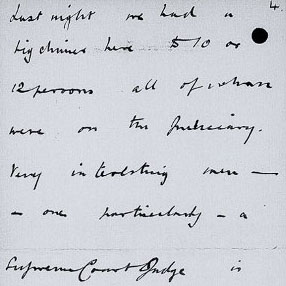 4.
Last night we had a
big dinner here $10 or
12 persons all of whom
were on the Judiciary.
Very interesting men —
– one particularly – a
Supreme Court Judge is